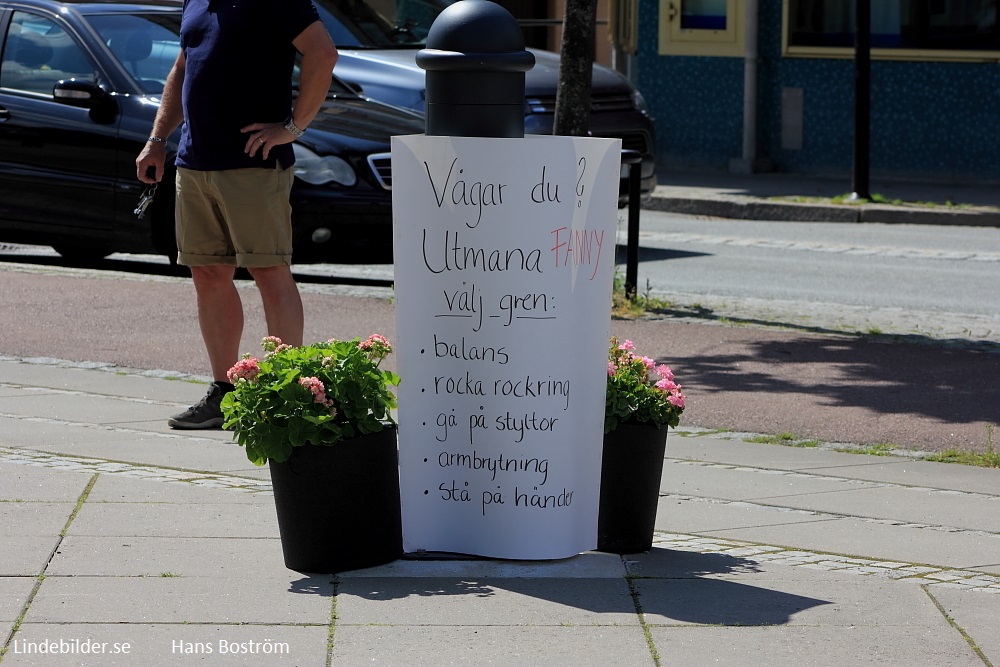 Vågar du ?
Utmana FANNY
välj gren:
• balans
• rocka rockring
• gå på styltor
• armbrytning
• stå på händer
Lindebilder.se Hans Boström